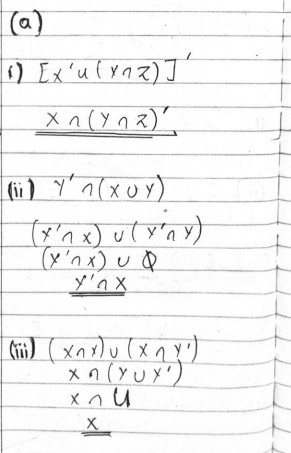 (a)
i) [X'∪(Y∩Z)]'
X∩(Y∩Z)'
(ii) Y'∩(X∪Y)
(Y'∩X)∪(Y'∩Y)
(Y'∩X)∪Φ
Y'∩X
(iii) (X∩Y)∪(X∩Y')
X∩(Y∪Y')
X∩U
X